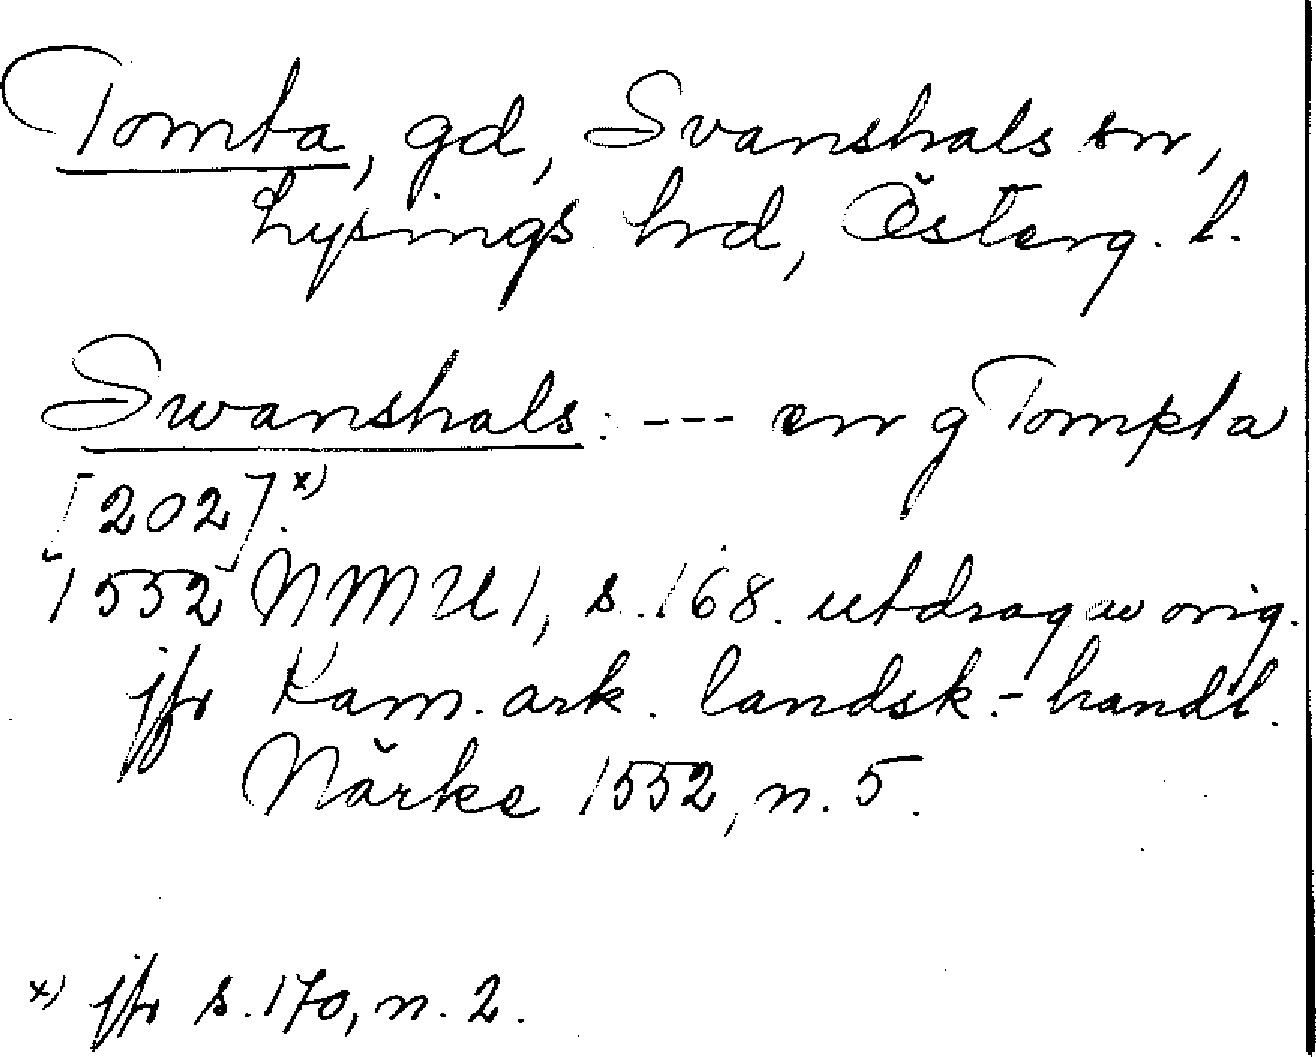 Tomta, gd, Svanshals sn,
Lysings hrd, Österg. l.
Swanshals: --- en g Tompta
[202].x)
1552 NMU 1, s. 168. utdrag av orig.
jfr Kam. ark. landsk.-handl.
Närke 1552, n. 5.
x) jfr s. 170, n. 2.